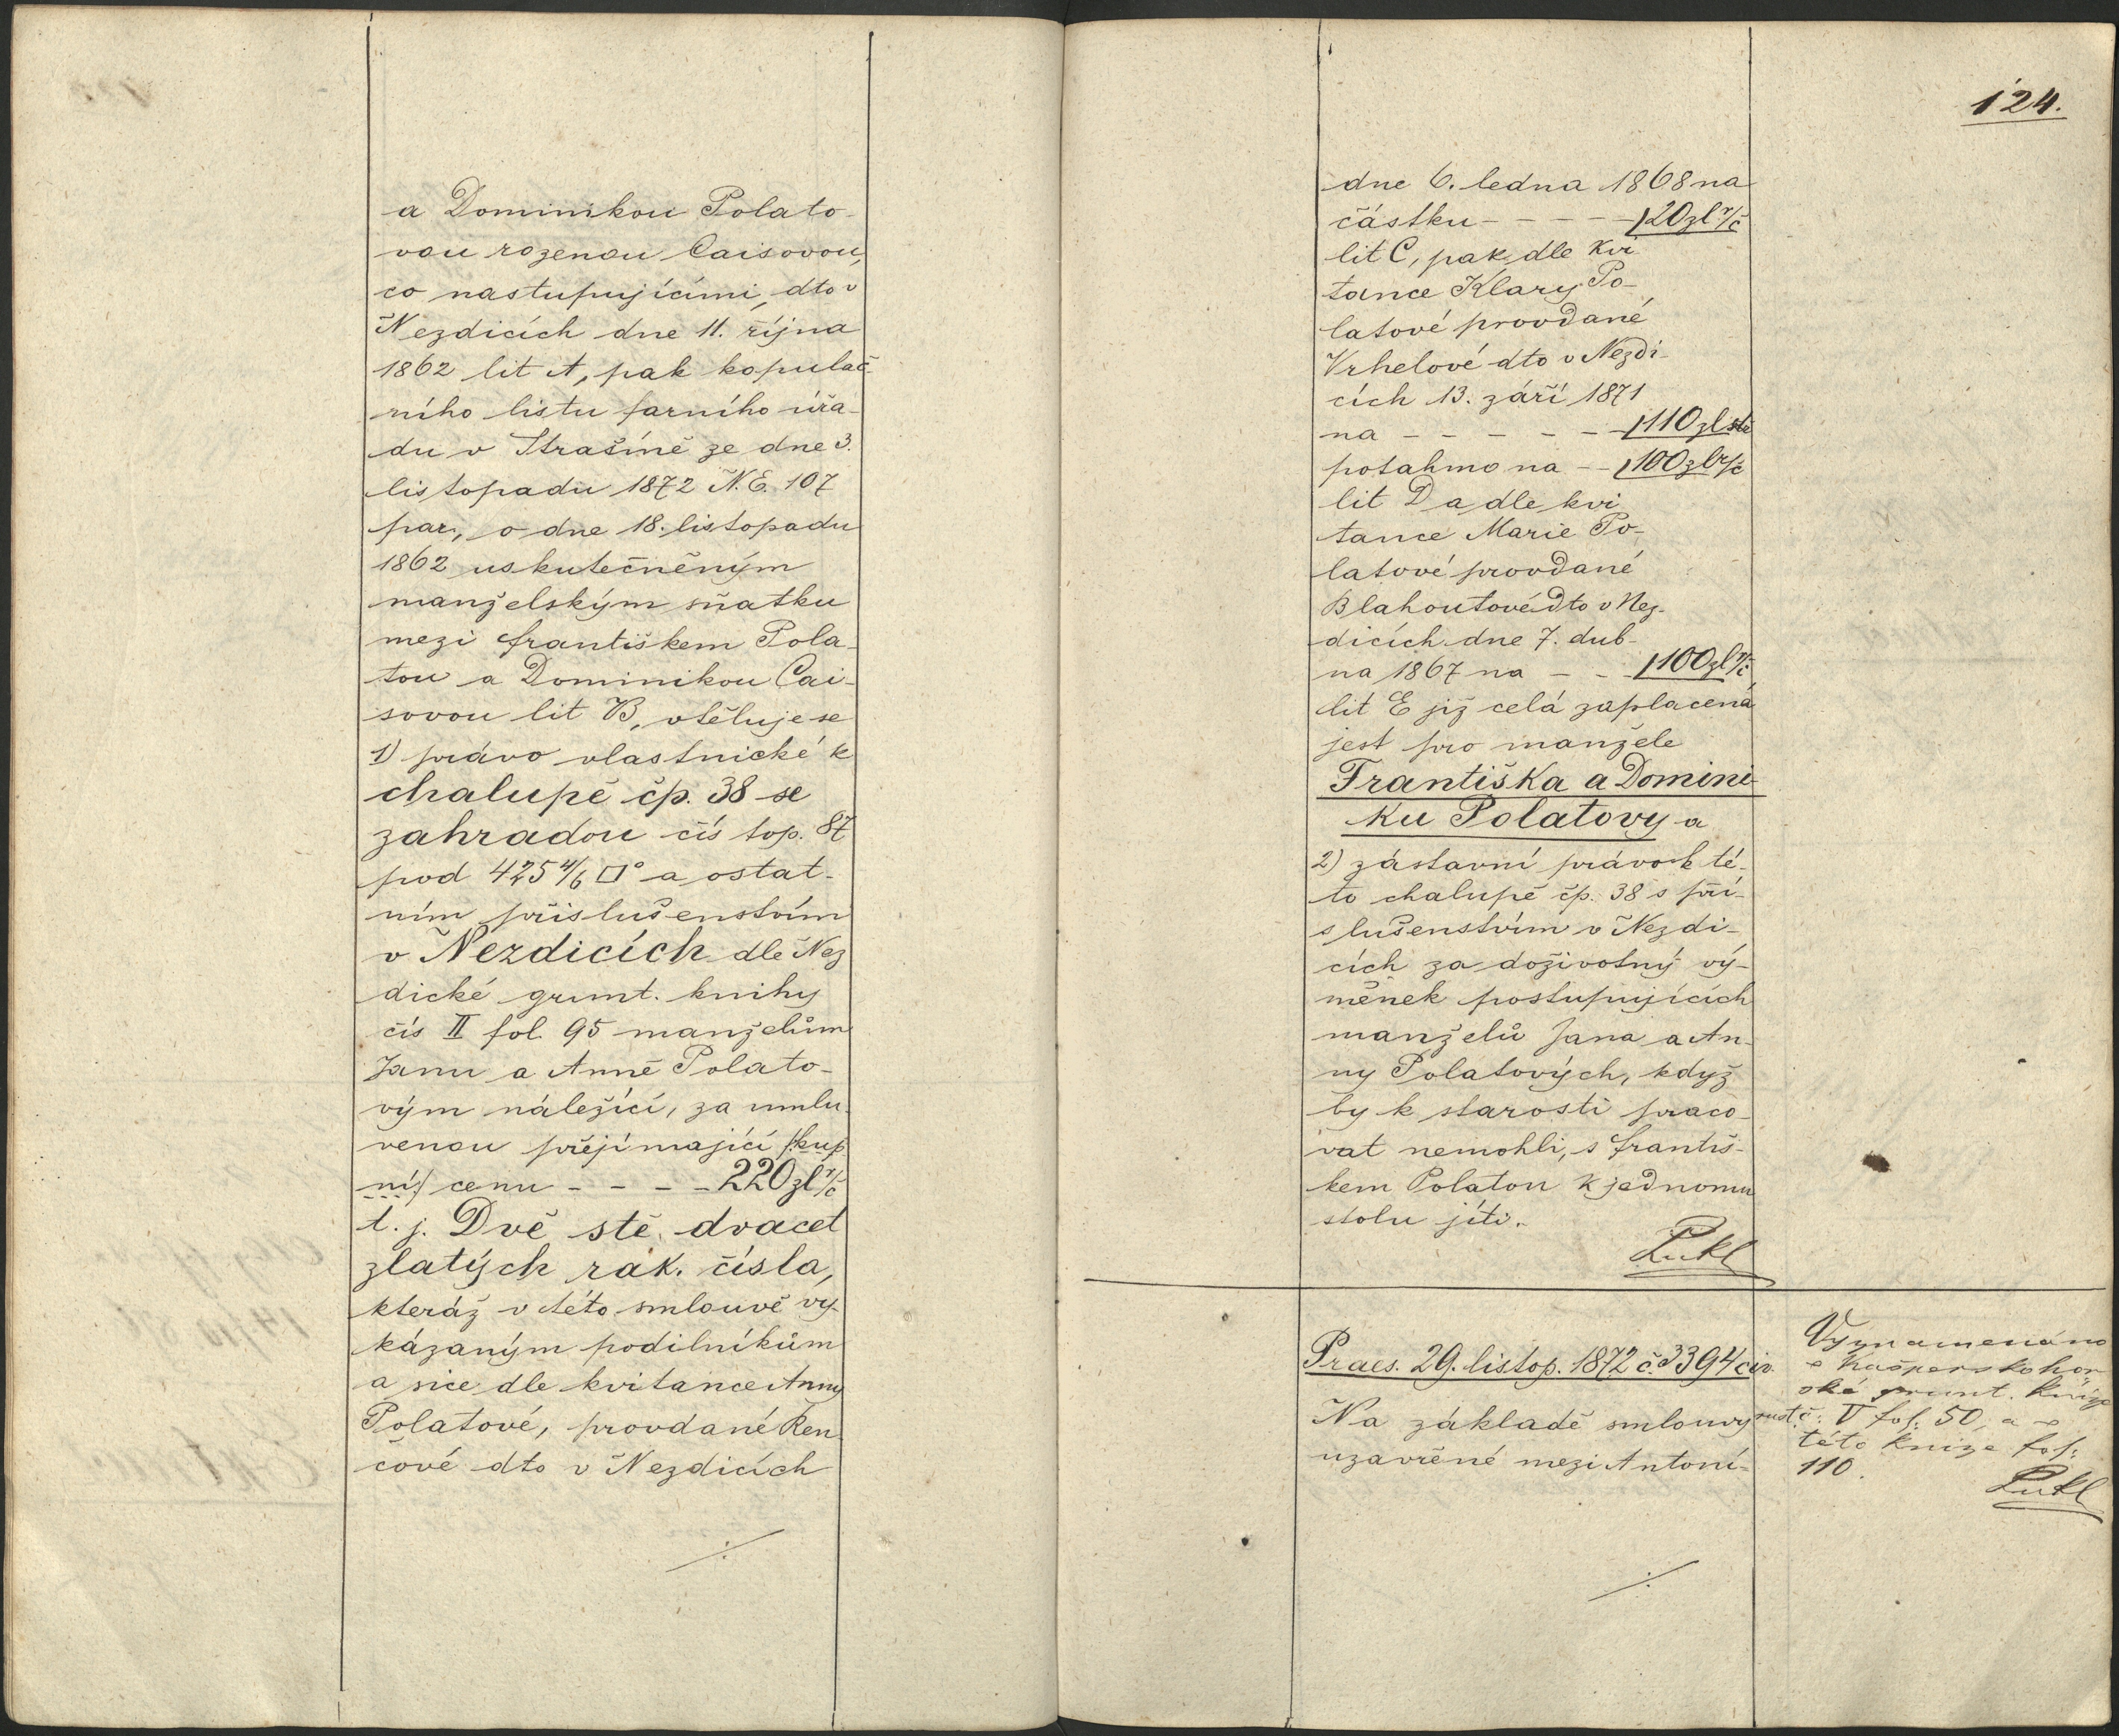 a Dominikou Polato-
vou rozenou Caisovou,
co nastupujícími, dto v
Nezdicích dne 11. října
1862 lit A, pak kopulač-
ního listu farního úřa-
du v Strašíně ze dne 3.
listopadu 1872 N.E. 107
par., o dne 18. listopadu
1862 uskutečněným
manželským sňatku
mezi Františkem Pola-
tou a Dominikou Cai-
sovou lit B, vtěluje se
1) právo vlastnické k
chalupě čp. 38 se
zahradou čís top. 87
pod 425 4/6 □° a ostat-
ním příslušenstvím
v Nezdicích dle Nez
dické grunt. knihy
čís II fol. 95 manželům
Janu a Anně Polato-
vým náležící, za umlu-
venou přejímající /:kup
ní:/ cenu - - - - 220 zl r/č
t. j. Dvě stě dvacet
zlatých rak. čísla,
kteráž v této smlouvě vy-
kázaným podílníkům
a sice dle kvitance Anny
Polatové, provdané Ren
čové dto v Nezdicích
./.
124.
dne 6. ledna 1868 na
částku - - - - - 120 zl r/č
lit C, pak dle kvi
tance Klary Po-
latové provdané
Vrhelové dto v Nezdi-
cích 13. září 1871
na - - - - - 110 zl stč
potahmo na - - 100 zl r/č
lit D a dle kvi
tance Marie Po-
latové provdané
Blahoutové dto v Nez-
dicích dne 7. dub-
na 1867 na - - 100 zl r/č
lit E již celá zaplacená
jest pro manžele
Františka a Domini-
ku Polatovy a
2) zástavní právo k té-
to chalupě čp. 38 s pří-
slušenstvím v Nezdi-
cích za doživotný vý-
měnek postupujících
manželů Jana a An-
ny Polatových, když
by k starosti praco-
vat nemohli, s Františ-
kem Polatou k jednomu
stolu jíti.
Lukl
Praes. 29. listop. 1872 č. 3394 civ
Na základě smlouvy
uzavřené mezi Antoní-
./.
Vyznamenáno
v Kašperskohor-
ské grunt. knize
rust. č. V fol: 50, a v
této knize fol:
110.
Lukl